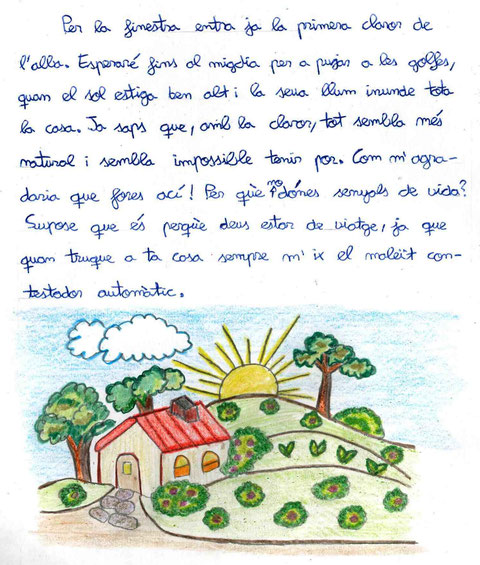 Per la finestra entra ja la primera claror de
l'alba. Esperaré fins al migdia per a pujar a les golfes,
quan el sol estiga ben alt i la seua llum inunde tota
la casa. Ja saps que, amb la claror, tot sembla més
natural i sembla impossible tenir por. Com m'agra-
daria que fores ací! Per què no dónes senyals de vida?
Supose que és perquè deus estar de viatge, ja que
quan truque a ta casa sempre m'ix el maleït con-
testador automàtic.